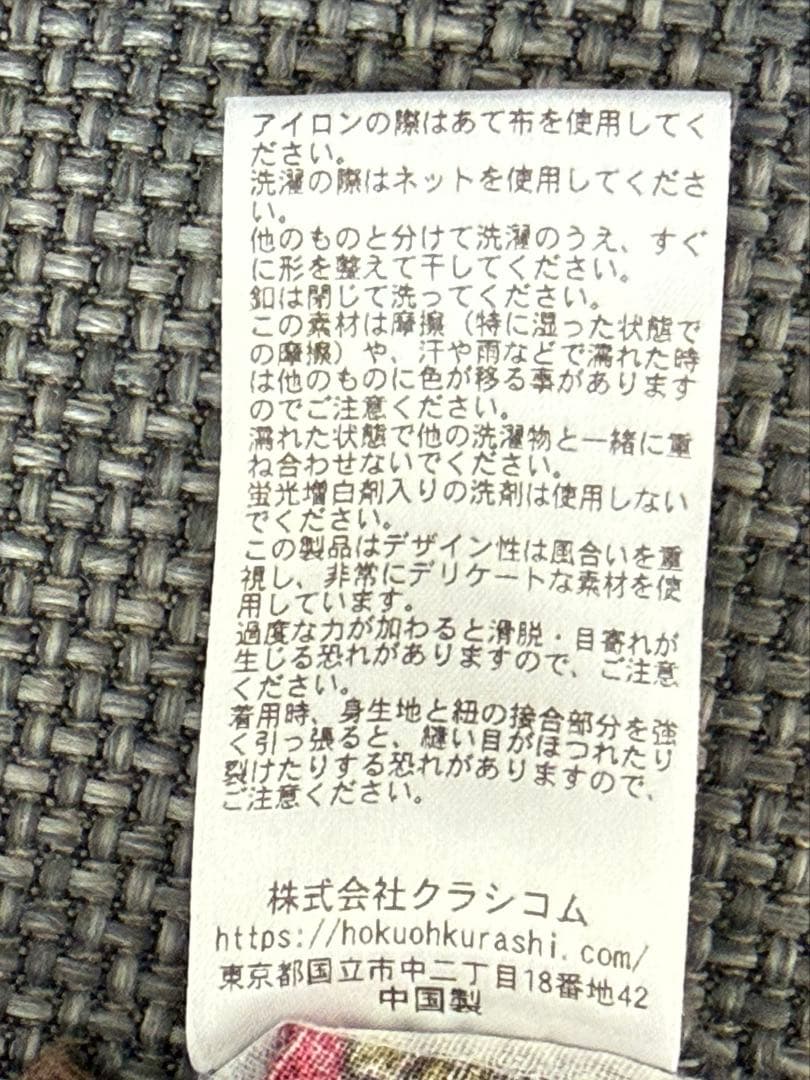 アイロンの際はあて布を使用してく
ださい。
洗濯の際はネットを使用してくださ
い。
他のものと分けて洗濯のうえ、すぐ
に形を整えて干してください。
釦は閉じて洗ってください。
この素材は摩擦（特に湿った状態で
の摩擦）や、汗や雨などで濡れた時
は他のものに色が移る事があります
のでご注意ください。
濡れた状態で他の洗濯物と一緒に重
ね合わせないでください。
蛍光増白剤入りの洗剤は使用しない
でください。
この製品はデザイン性は風合いを重
視し、非常にデリケートな素材を使
用しています。
過度な力が加わると滑脱・目寄れが
生じる恐れがありますので、ご注意
ください。
着用時、身生地と紐の接合部分を強
く引っ張ると、縫い目がほつれたり
裂けたりする恐れがありますので、
ご注意ください。
株式会社クラシコム
https://hokuohkurashi.com/
東京都国立市中二丁目18番地42
中国製